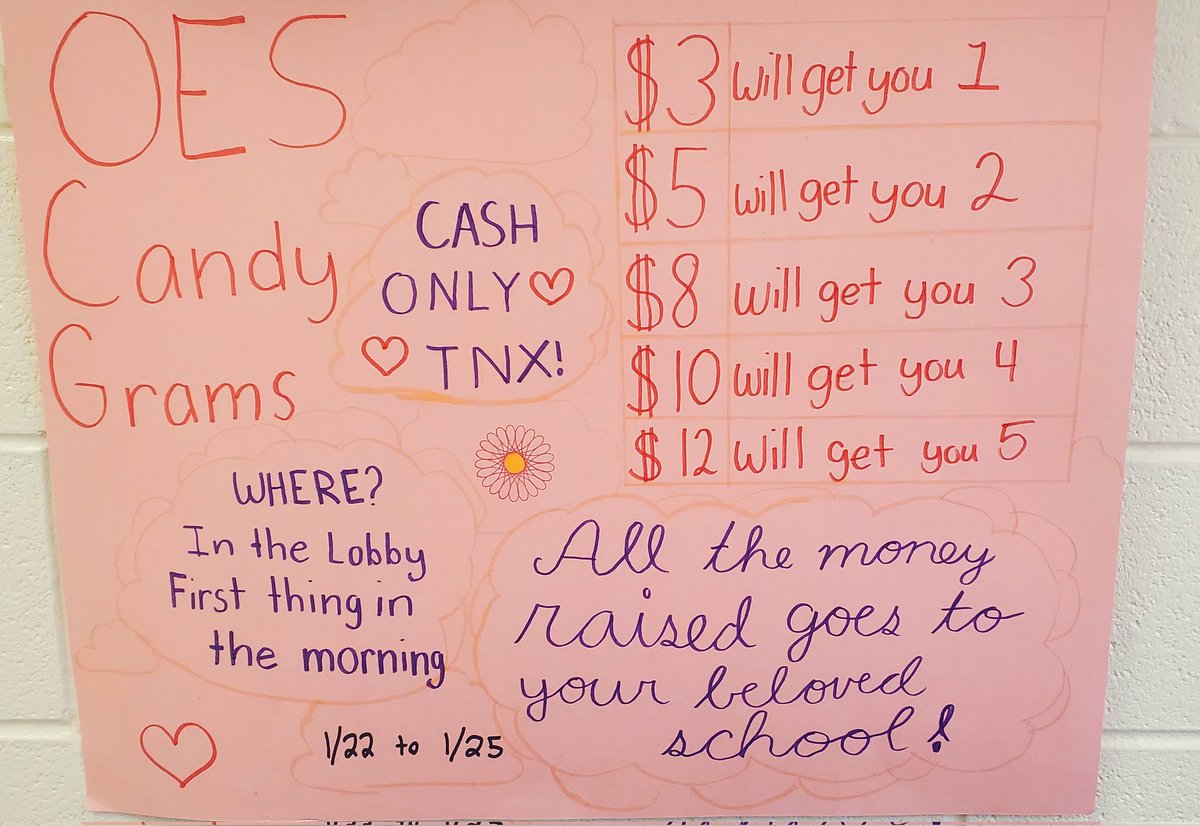 OES
Candy
Grams
CASH
ONLY
TNX!
$3 will get you 1
$5 will get you 2
$8 will get you 3
$10 will get you 4
$12 will get you 5
WHERE?
In the Lobby
First thing in
the morning
1/22 to 1/25
All the money
raised goes to
your beloved
school!